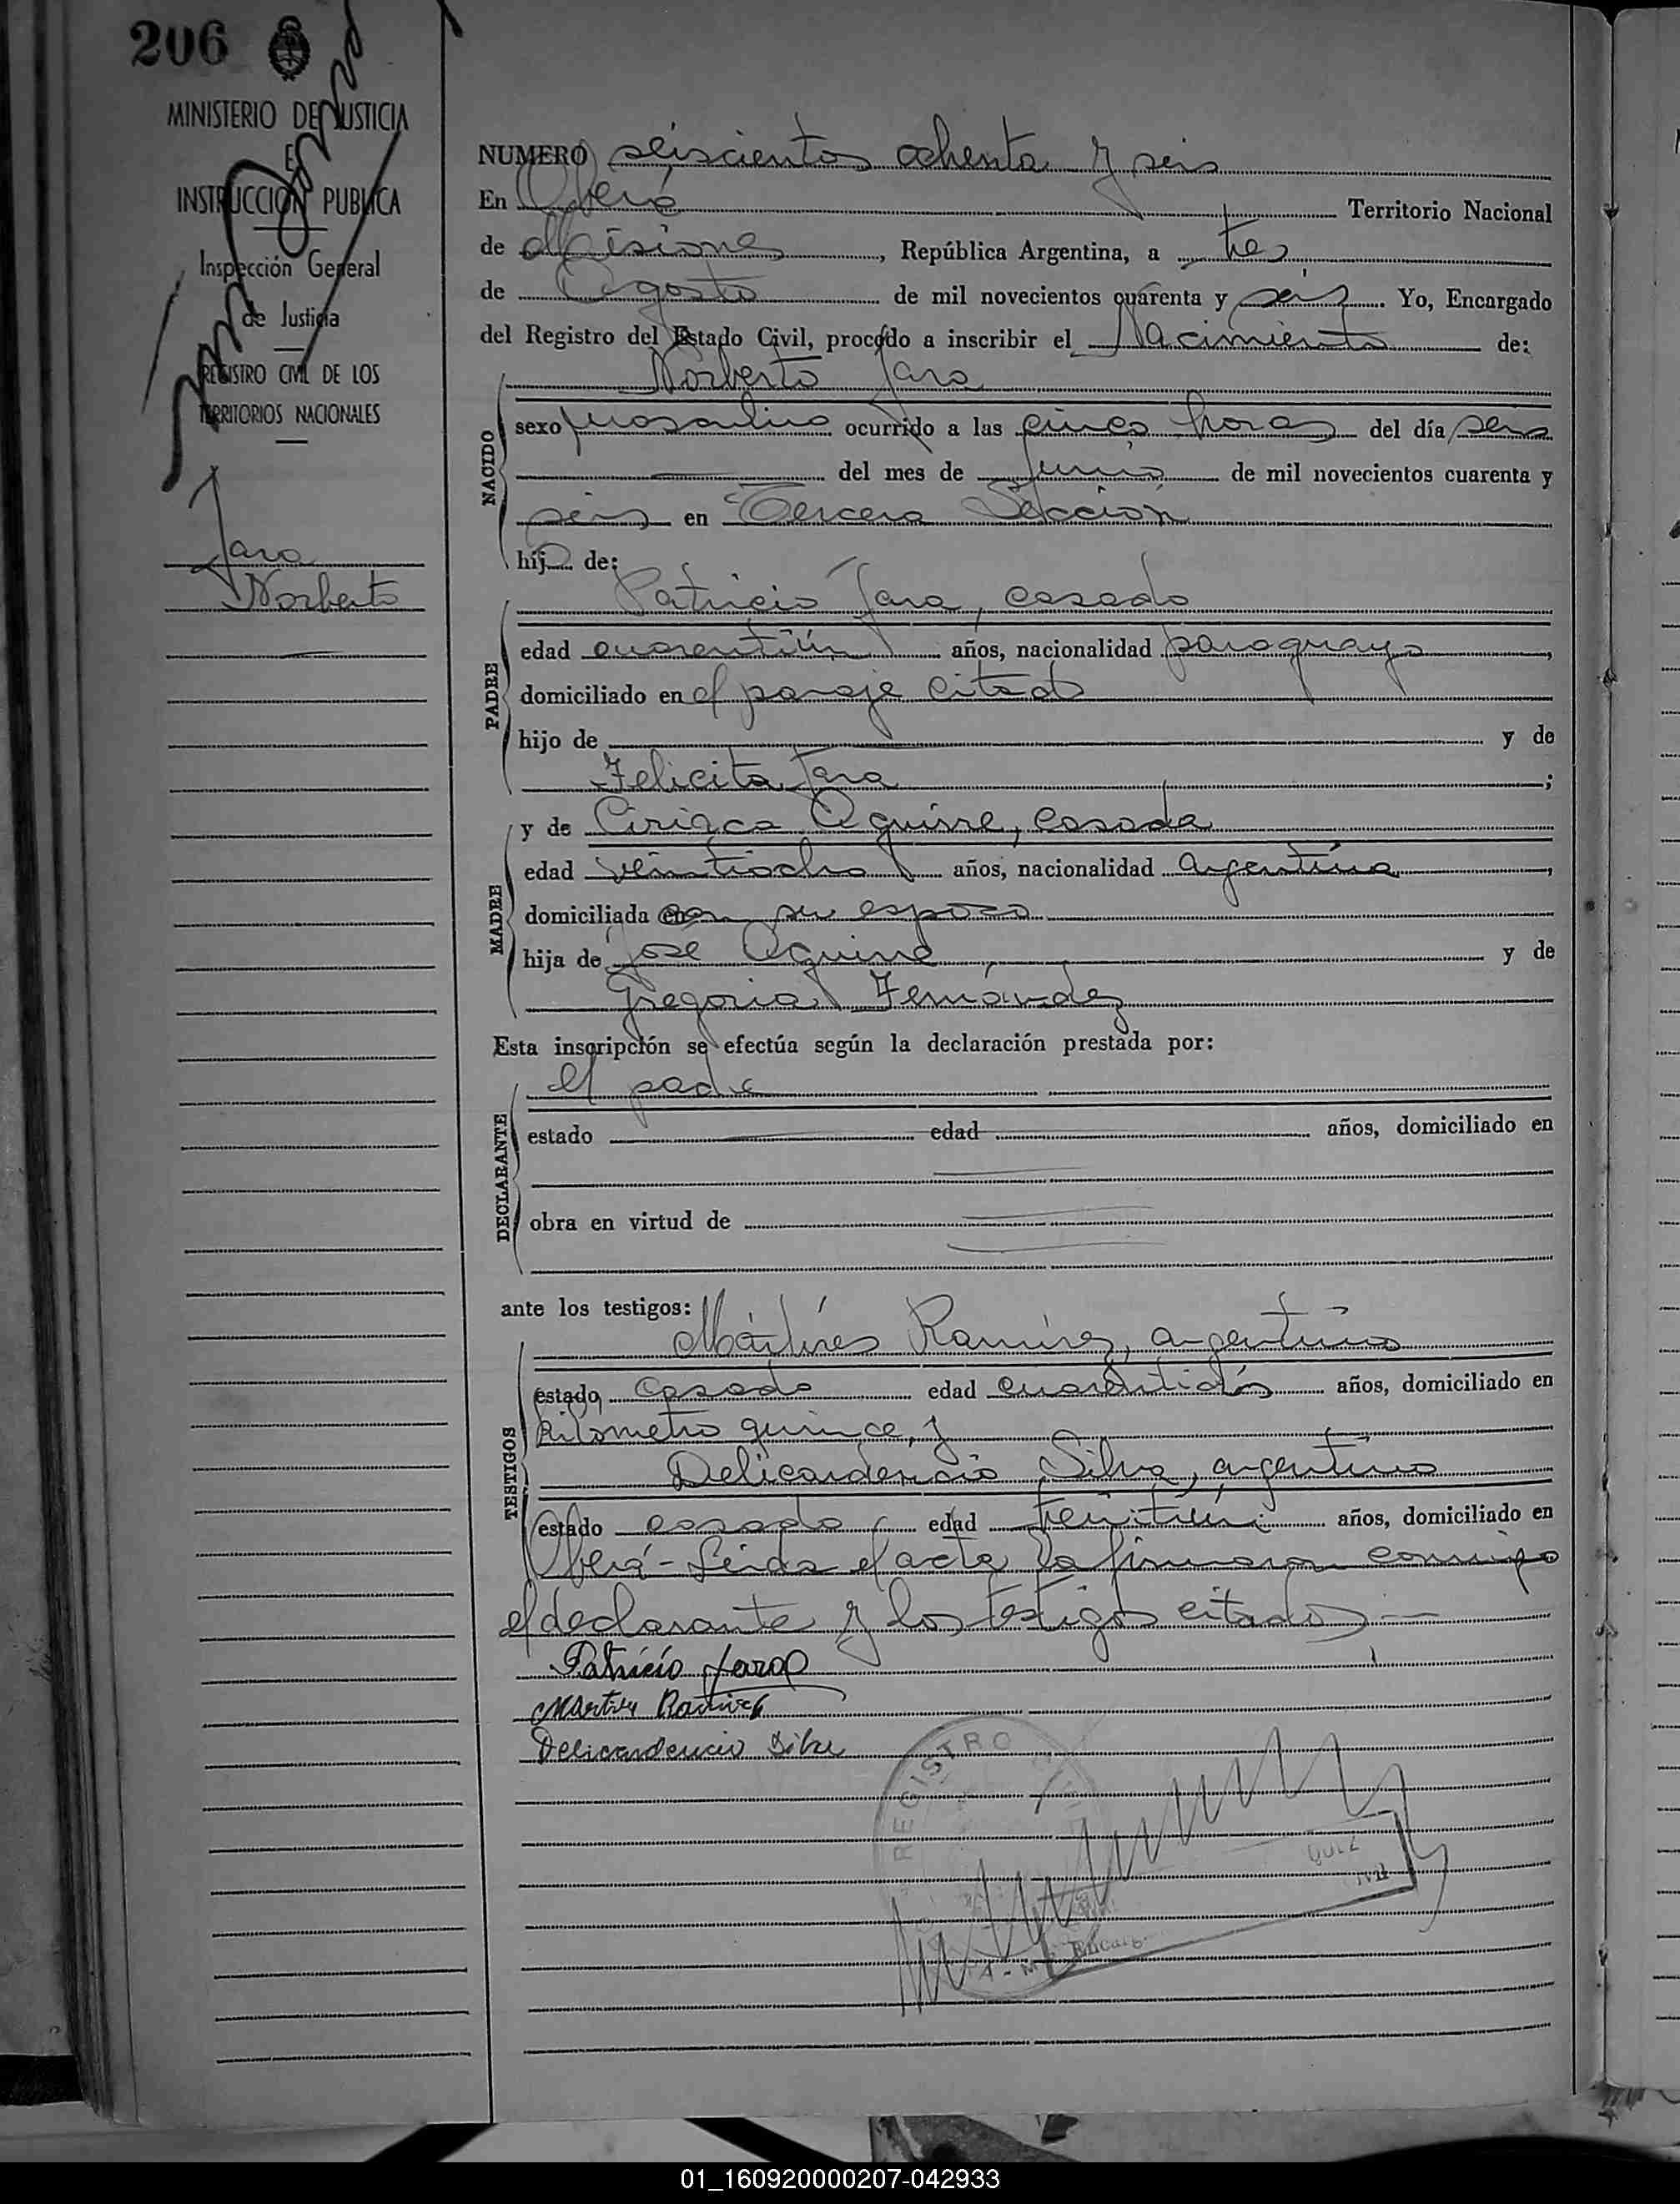 206
MINISTERIO DE JUSTICIA
E
INSTRUCCION PUBLICA
Inspección General
de Justicia
REGISTRO CIVIL DE LOS
TERRITORIOS NACIONALES
Jara
Norberto
NUMERO seiscientos ochenta y seis
En Oberá Territorio Nacional
de Misiones, República Argentina, a tres
de Agosto de mil novecientos cuarenta y seis. Yo, Encargado
del Registro del Estado Civil, procedo a inscribir el Nacimiento de:
Norberto Jara
NACIDO
sexo masculino ocurrido a las cinco horas del día seis
del mes de Junio de mil novecientos cuarenta y
seis en Tercera Sección
hijo de:
Patricio Jara, casado
PADRE
edad cuarentiún años, nacionalidad paraguayo,
domiciliado en el paraje citado
hijo de y de
Felicita Jara;
MADRE
y de Ciriaca Aguirre, casada
edad veintiocho años, nacionalidad argentina,
domiciliada con su esposo
hija de José Aguirre y de
Gregoria Fernández
Esta inscripción se efectúa según la declaración prestada por:
el padre
DECLARANTE
estado edad años, domiciliado en
obra en virtud de
ante los testigos:
Mártires Ramírez, argentino
TESTIGOS
estado casado edad cuarentidós años, domiciliado en
kilometro quince, y
Delicardencio Silva, argentino
estado casado edad treintiún años, domiciliado en
Oberá - Leida el acta la firmaron conmigo
el declarante y los testigos citados
Patricio Jara
Martires Ramirez
Delicardencio Silva
REGISTRO
Encarg
01_160920000207-042933